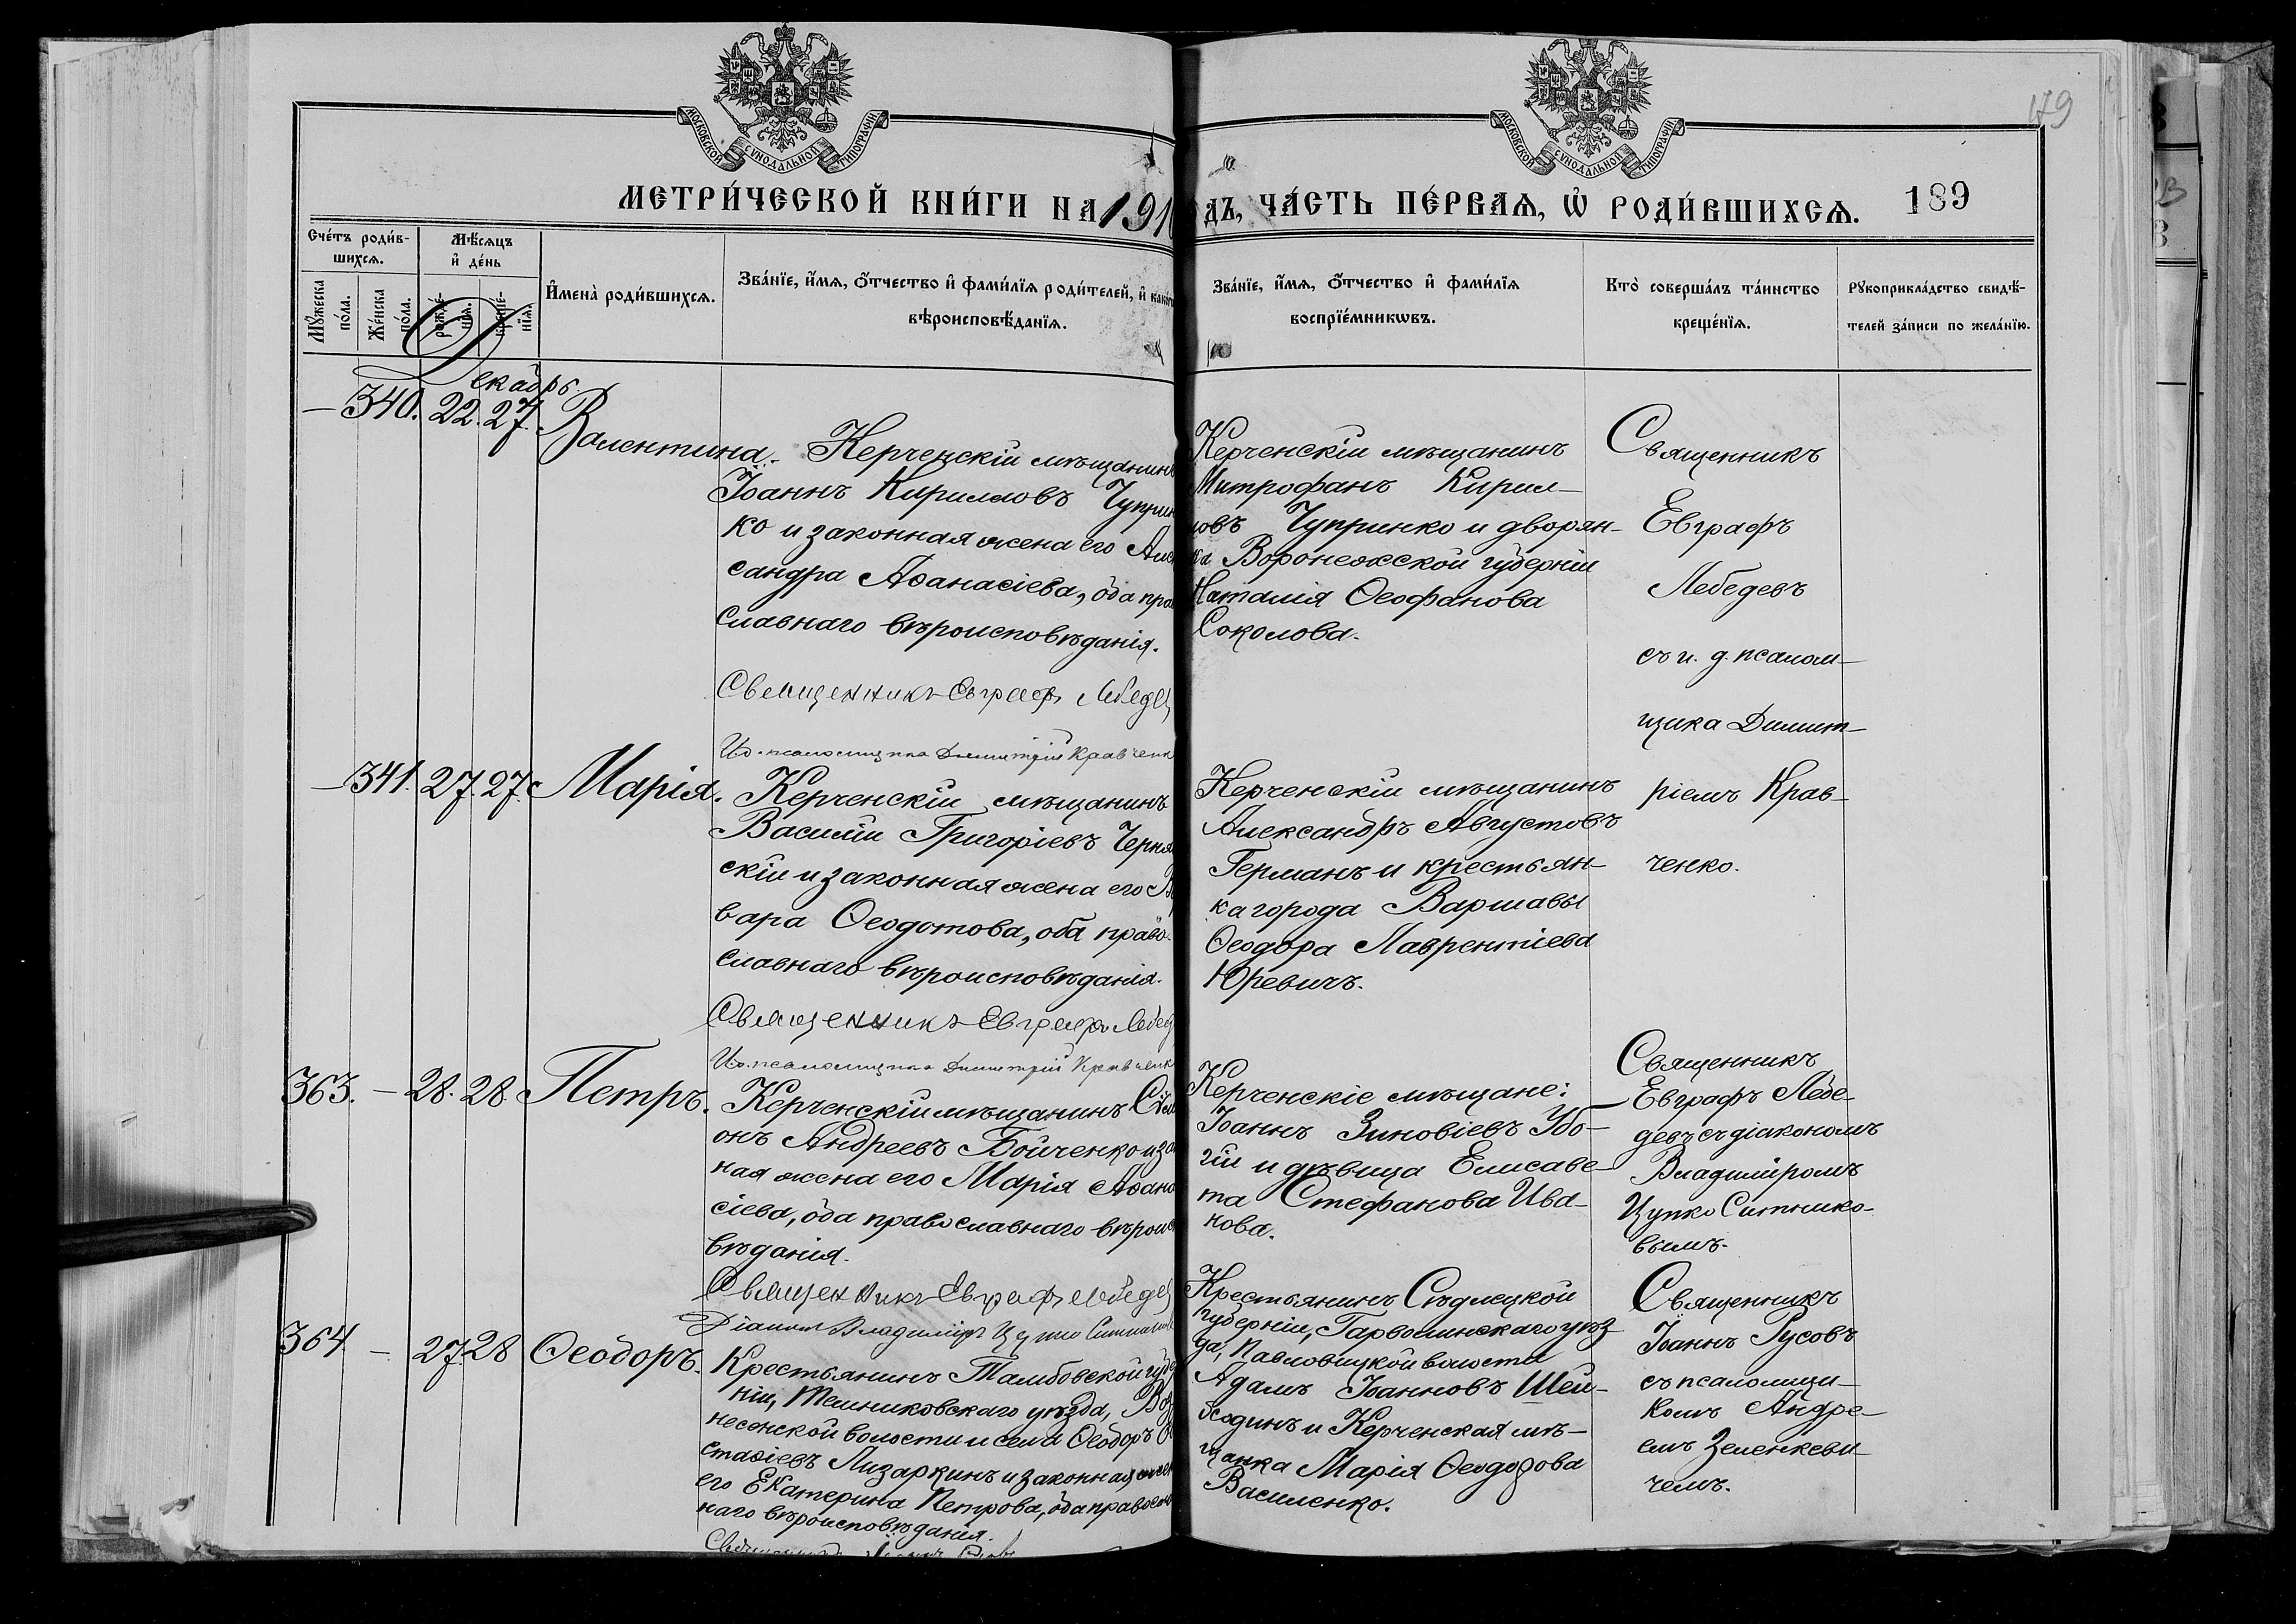 МОСКОВСКОЙ СѴНОДАЛЬНОЙ ТИПОГРАФІИ
МОСКОВСКОЙ СѴНОДАЛЬНОЙ ТИПОГРАФІИ
179
МЕТРИ́ЧЕСКОЙ КНИ́ГИ НА 191
ДЪ, ЧА́СТЬ ПЕ́РВАѦ, Ѡ҆ РОДИ́ВШИХСѦ. 189
Счéтъ роди́в-
шихсѧ.
Мꙋ́жеска по́ла.
Же́нска по́ла.
Мѣ́сѧцъ
и҆ де́нь
рожде́-нїѧ.
креще́-нїѧ.
И҆мена̀ роди́вшихсѧ.
Зва́нїе, и҆́мѧ, ѻ҆́тчество и҆ фами́лїѧ роди́телей, и҆ како́г
вѣроисповѣ́данїѧ.
Зва́нїе, и҆́мѧ, ѻ҆́тчество и҆ фами́лїѧ
воспрїе́мникѡвъ.
Кто̀ соверша́лъ та́инство
креще́нїѧ.
Рꙋкоприкла́дство свидѣ́-
телей за́писи по жела́нїю.
Декабрь.
— 340. 22. 27. Валентина.
Керченскій мѣщанинъ
Іоаннъ Кирилловъ Чуприн
ко и законная жена его Алек
сандра Аѳанасіева, оба пра
славнаго вѣроисповѣданія.
Священникъ Евграфъ Лебеде
И. д. псаломщика Димитрій Кравченк
Керченскій мѣщанинъ
Митрофанъ Кирил-
ловъ Чупринко и дворян-
ка Воронежской губерніи
Наталія Ѳеофанова
Соколова.
Священникъ
Евграфъ
Лебедевъ
съ и. д. псалом-
щика Димит-
ріемъ Крав-
ченко.
— 341. 27. 27. Марія.
Керченскій мѣщанинъ
Василій Григоріевъ Черня
скій и законная жена его В
вара Ѳеодотова, оба право-
славнаго вѣроисповѣданія.
Священникъ Евграфъ Лебед
И. д. псаломщика Димитрій Кравченк
Керченскій мѣщанинъ
Александръ Августовъ
Германъ и крестьян-
ка города Варшавы
Ѳеодора Лаврентіева
Юревичъ.
363. — 28. 28. Петръ.
Керченскій мѣщанинъ Сѵм
онъ Андреевъ Бойченко и за
ная жена его Марія Аѳана
сіева, оба православнаго вѣроис
вѣданія.
Священникъ Евграфъ Лебеде
Діаконъ Владиміръ Цупко Ситников
Керченскіе мѣщане:
Іоаннъ Зиновіевъ Убо-
гій и дѣвица Елисаве-
та Стефанова Ива-
нова.
Священникъ
Евграфъ Лебе-
девъ съ діакономъ
Владиміромъ
Цупко Ситнико-
вымъ.
364 — 27. 28 Ѳеодоръ.
Крестьянинъ Тамбовской губе
ніи, Темниковскаго уѣзда, Воз
несенской волости и села Ѳеодоръ
стаѳіевъ Лизаркинъ и законная жен
его Екатерина Петрова, оба правосла
наго вѣроисповѣданія.
Священникъ Іоаннъ Русовъ
Крестьянинъ Сѣдлецкой
губерніи, Гарволинскаго уѣз
да, Павловицкой волости
Адамъ Іоанновъ Шей-
бсодинъ и Керченская мѣ-
щанка Марія Ѳеодорова
Василенко.
Священникъ
Іоаннъ Русовъ
съ псаломщи-
комъ Андре-
емъ Зеленкеви-
чемъ.